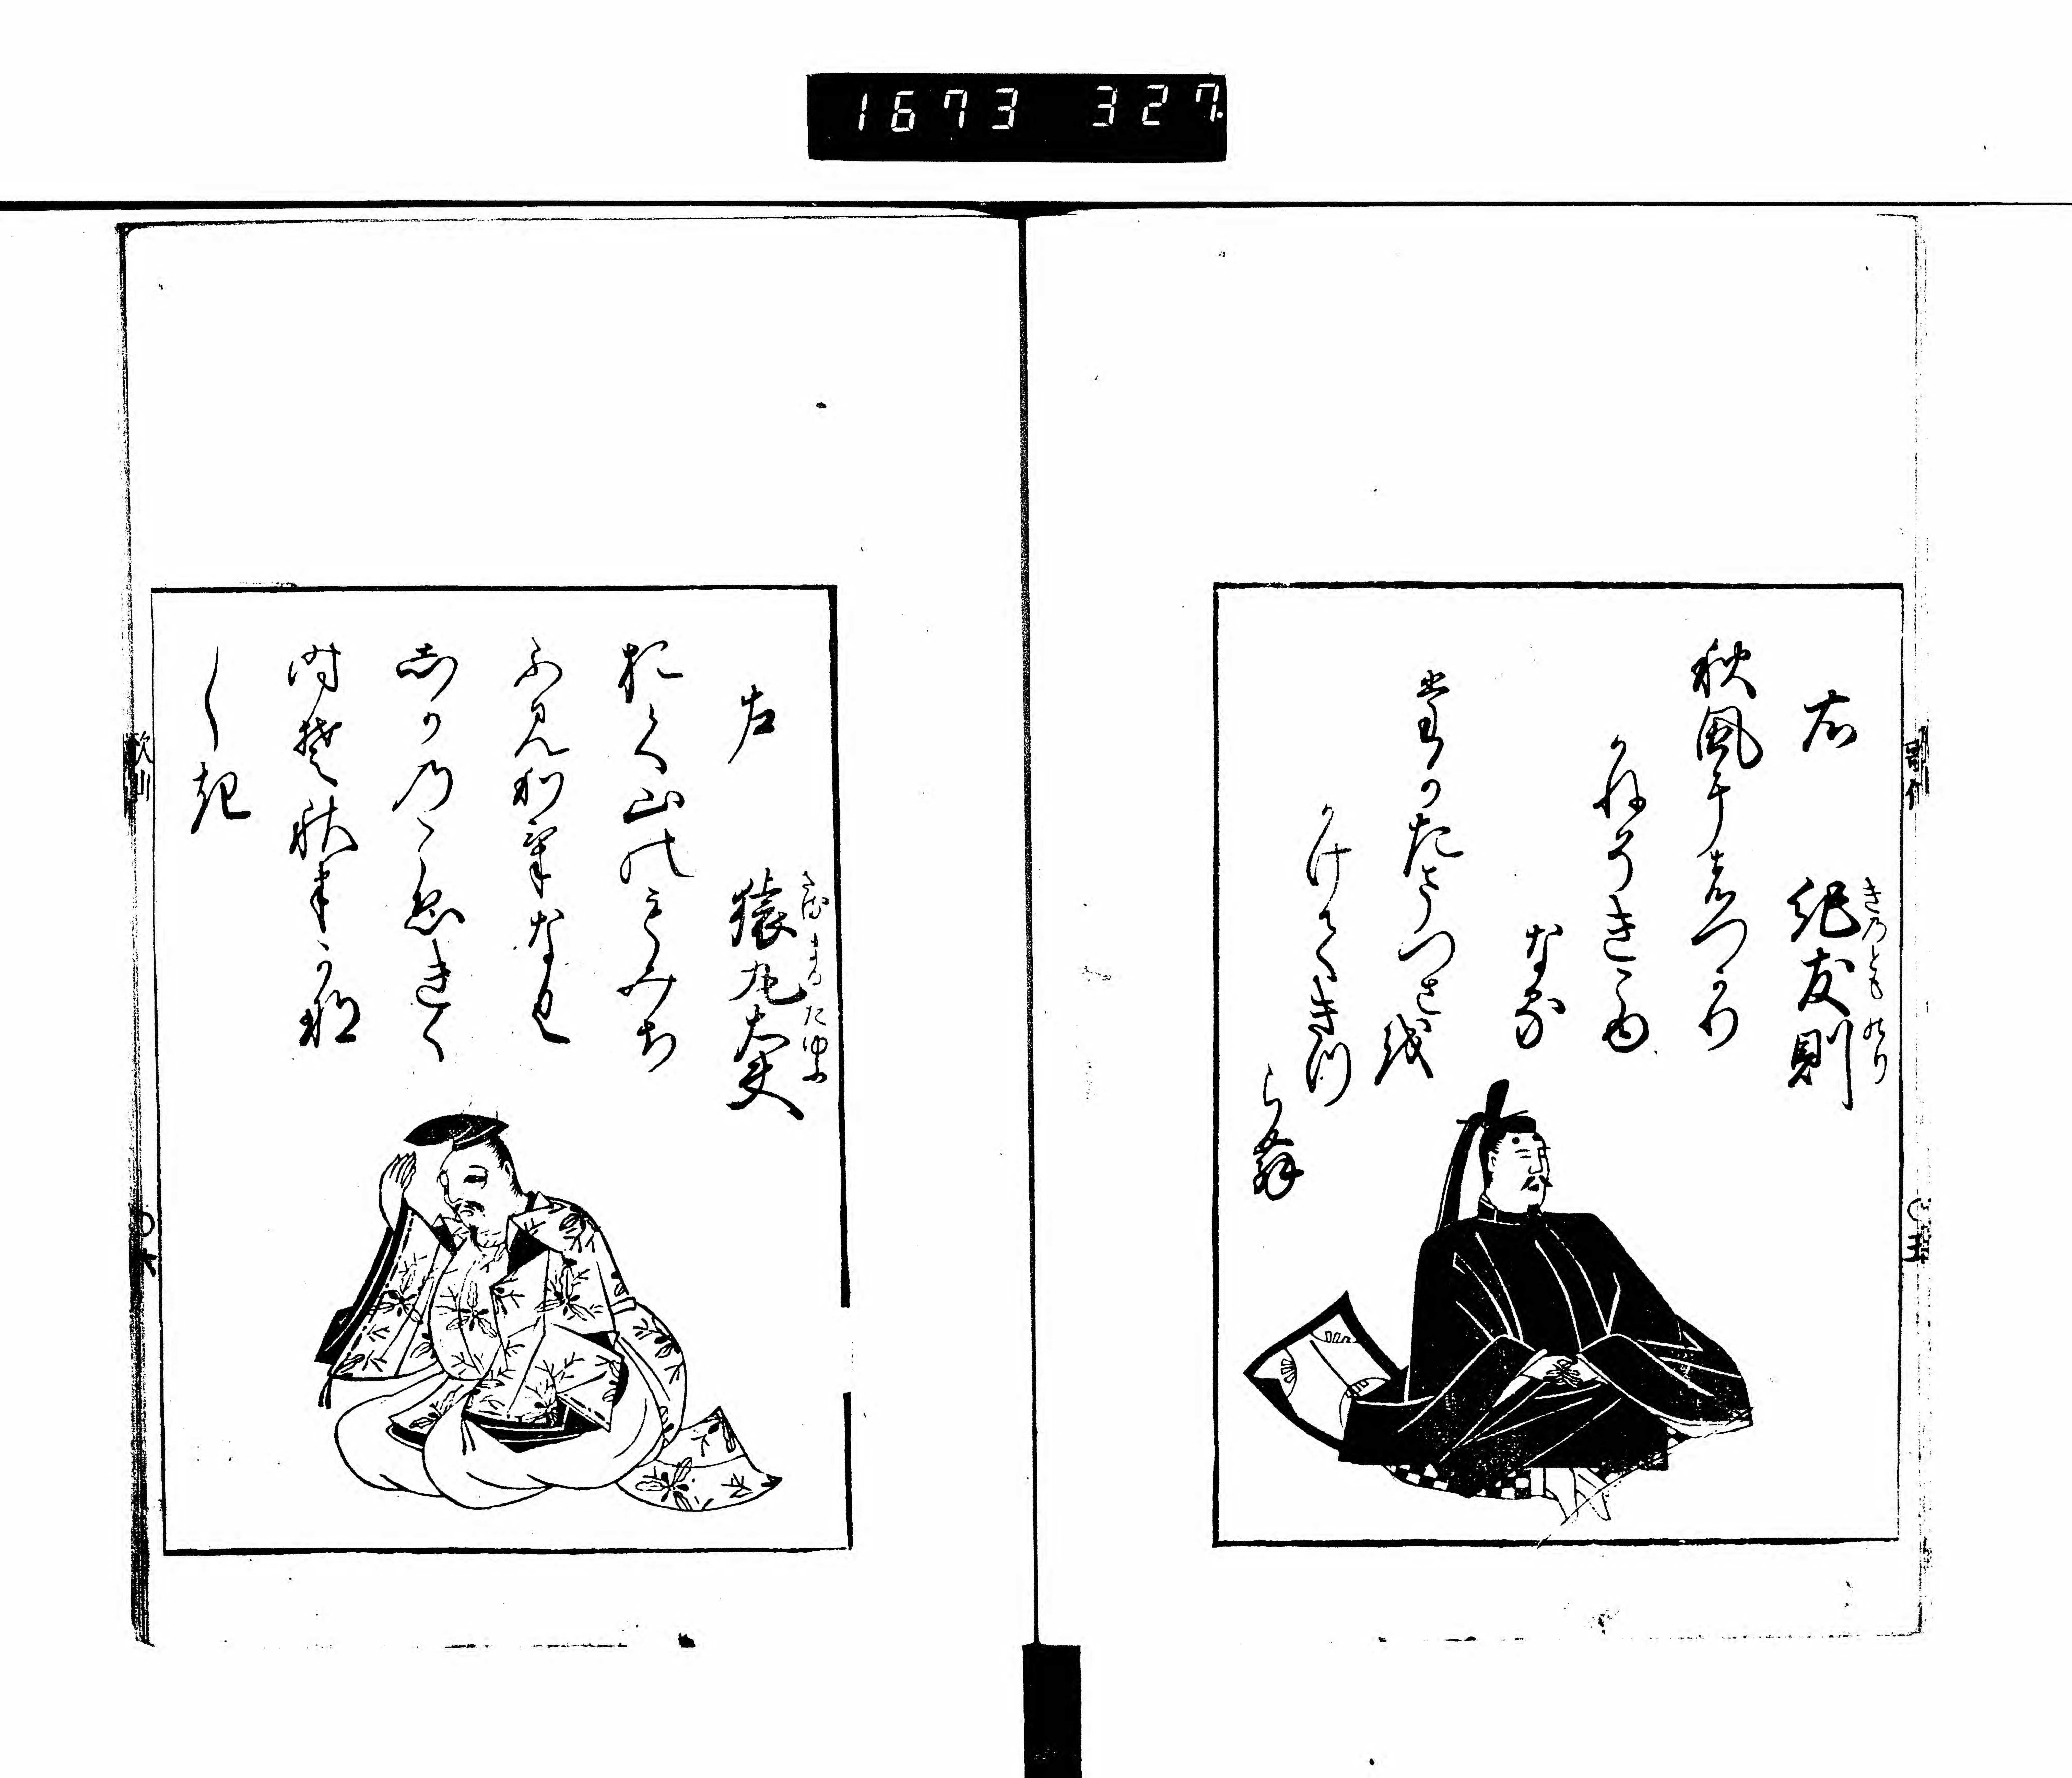 1673 327.
右
紀友則
きのとものり
秋風にはつかり
かねそきこゆ
なる
たかたまつさを
かけてきつ
らむ
五
左
猿丸太夫
さるまるたゆふ
おく山のもみち
ふみわけなく
しかのこゑきく
時そ秋はかな
しき
六